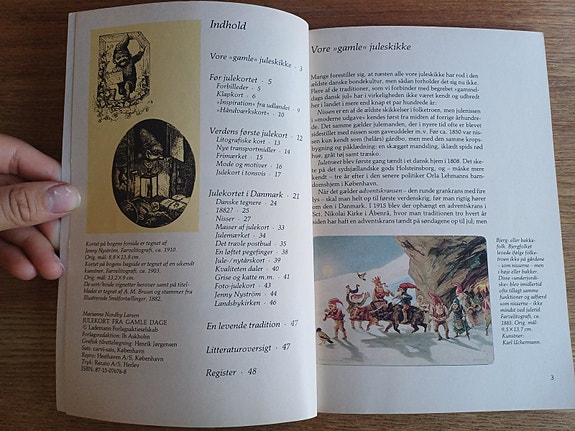 Kortet på bogens forside er tegnet af
Jenny Nyström. Farvelitografi, ca. 1910.
Orig. mål: 8,8 × 13,8 cm.
Kortet på bogens bagside er tegnet af en ukendt
kunstner. Farvelitografi, ca. 1903.
Orig. mål: 13,2×9 cm.
De sort/hvide vignetter herover samt på titel-
bladet er tegnet af A. M. Bruun og stammer fra
Illustrerede Smaafortællinger, 1882.
Marianne Nordby Larsen
JULEKORT FRA GAMLE DAGE
© Lademann Forlagsaktieselskab
Forlagsredaktion: Ib Askholm
Grafisk tilrettelægning: Henrik Jørgensen
Sats: satri-sats, København
Repro: Heathaven A/S, København
Tryk: Reuato A/S, Herlev
ISBN: 87-15-07678-8
Indhold
Vore »gamle« juleskikke · 3
Før julekortet · 5
Forbilleder · 5
Klapkort · 6
»Inspiration« fra udlandet · 9
»Håndværkskort« · 10
Verdens første julekort · 12
Litografiske kort · 13
Nye transportmidler · 14
Frimærket · 15
Mode og motiver · 16
Julekort i tonsvis · 17
Julekortet i Danmark · 21
Danske tegnere · 24
1882? · 25
Nisser · 27
Masser af julekort · 33
Julemærket · 34
Det travle postbud · 35
En løftet pegefinger · 38
Jule-/nytårskort · 39
Kvaliteten daler · 40
Grise og katte m.m. · 41
Foto-julekort · 43
Jenny Nyström · 44
Landsbykirken · 46
En levende tradition · 47
Litteraturoversigt · 47
Register · 48
Vore »gamle« juleskikke
Mange forestiller sig, at næsten alle vore juleskikke har rod i den
ældste danske bondekultur, men sådan forholder det sig nu ikke.
Flere af de traditioner, som vi forbinder med begrebet »gammel-
dags dansk jul« har i virkeligheden ikke været kendt og udbredt
her i landet i mere end knap et par hundrede år:
Nissen er en af de ældste skikkelser i folketroen, men julenissen
i »moderne udgave« kendes først fra midten af forrige århundre-
de. Det samme gælder julemanden, der i nyere tid ofte er blevet
sidestillet med nissen som gaveuddeler m.v. Før ca. 1830 var nis-
sen kun kendt som (helårs) gårdbo, men med den samme krops-
bygning og påklædning: en skægget mandling, iklædt rød nisse-
hue, gråt tøj samt træsko.
Juletræet blev første gang tændt i et dansk hjem i 1808. Det ske-
te på det sydsjællandske gods Holsteinborg, og – måske mere
kendt – tre år efter i den senere politiker Orla Lehmanns barn-
domshjem i København.
Når det gælder adventskransen – den runde grankrans med fire
lys – skal man helt op til første verdenskrig, før man rigtig hører
om den i Danmark. I 1915 blev der ophængt en adventskrans i
Sct. Nikolai Kirke i Åbenrå, hvor man traditionen tro hvert år
siden har haft en adventskrans tændt på søndagene op til jul; men
Bjerg- eller bakke-
folk. Bjergfolket
levede ifølge folke-
troen ikke på gårdene
– som nisserne – men
i høje eller bakker.
Disse »underjordi-
ske« blev imidlertid
ofte tillagt samme
funktioner og adfærd
som nisserne – ikke
mindst ved juletid.
Farvelitografi, ca.
1885. Orig. mål:
9,5 × 13,7 cm.
Kunstner:
Karl Uchermann.
3